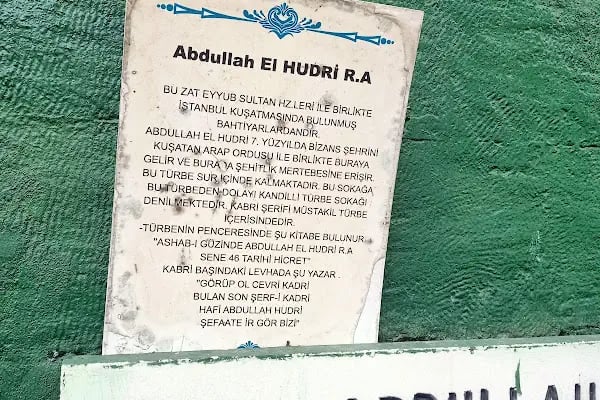 Abdullah El HUDRİ R.A
BU ZAT EYYUB SULTAN HZ.LERİ İLE BİRLİKTE
İSTANBUL KUŞATMASINDA BULUNMUŞ
BAHTİYARLARDANDIR.
ABDULLAH EL HUDRİ 7. YÜZYILDA BİZANS ŞEHRİNİ
KUŞATAN ARAP ORDUSU İLE BİRLİKTE BURAYA
GELİR VE BURAYA ŞEHİTLİK MERTEBESİNE ERİŞİR.
BU TÜRBE SUR İÇİNDE KALMAKTADIR. BU SOKAĞA
BU TÜRBEDEN DOLAYI KANDİLLİ TÜRBE SOKAĞI
DENİLMEKTEDİR. KABRİ ŞERİFİ MÜSTAKİL TÜRBE
İÇERİSİNDEDİR.
-TÜRBENİN PENCERESİNDE ŞU KİTABE BULUNUR.
"ASHAB-I GÜZİNDE ABDULLAH EL HUDRİ R.A
SENE 46 TARİHİ HİCRET"
KABRİ BAŞINDAKİ LEVHADA ŞU YAZAR .
"GÖRÜP OL CEVRİ KADRİ
BULAN SON ŞERF-İ KADRİ
HAFİ ABDULLAH HUDRİ
ŞEFAATE İR GÖR BİZİ"
ABDULLAH